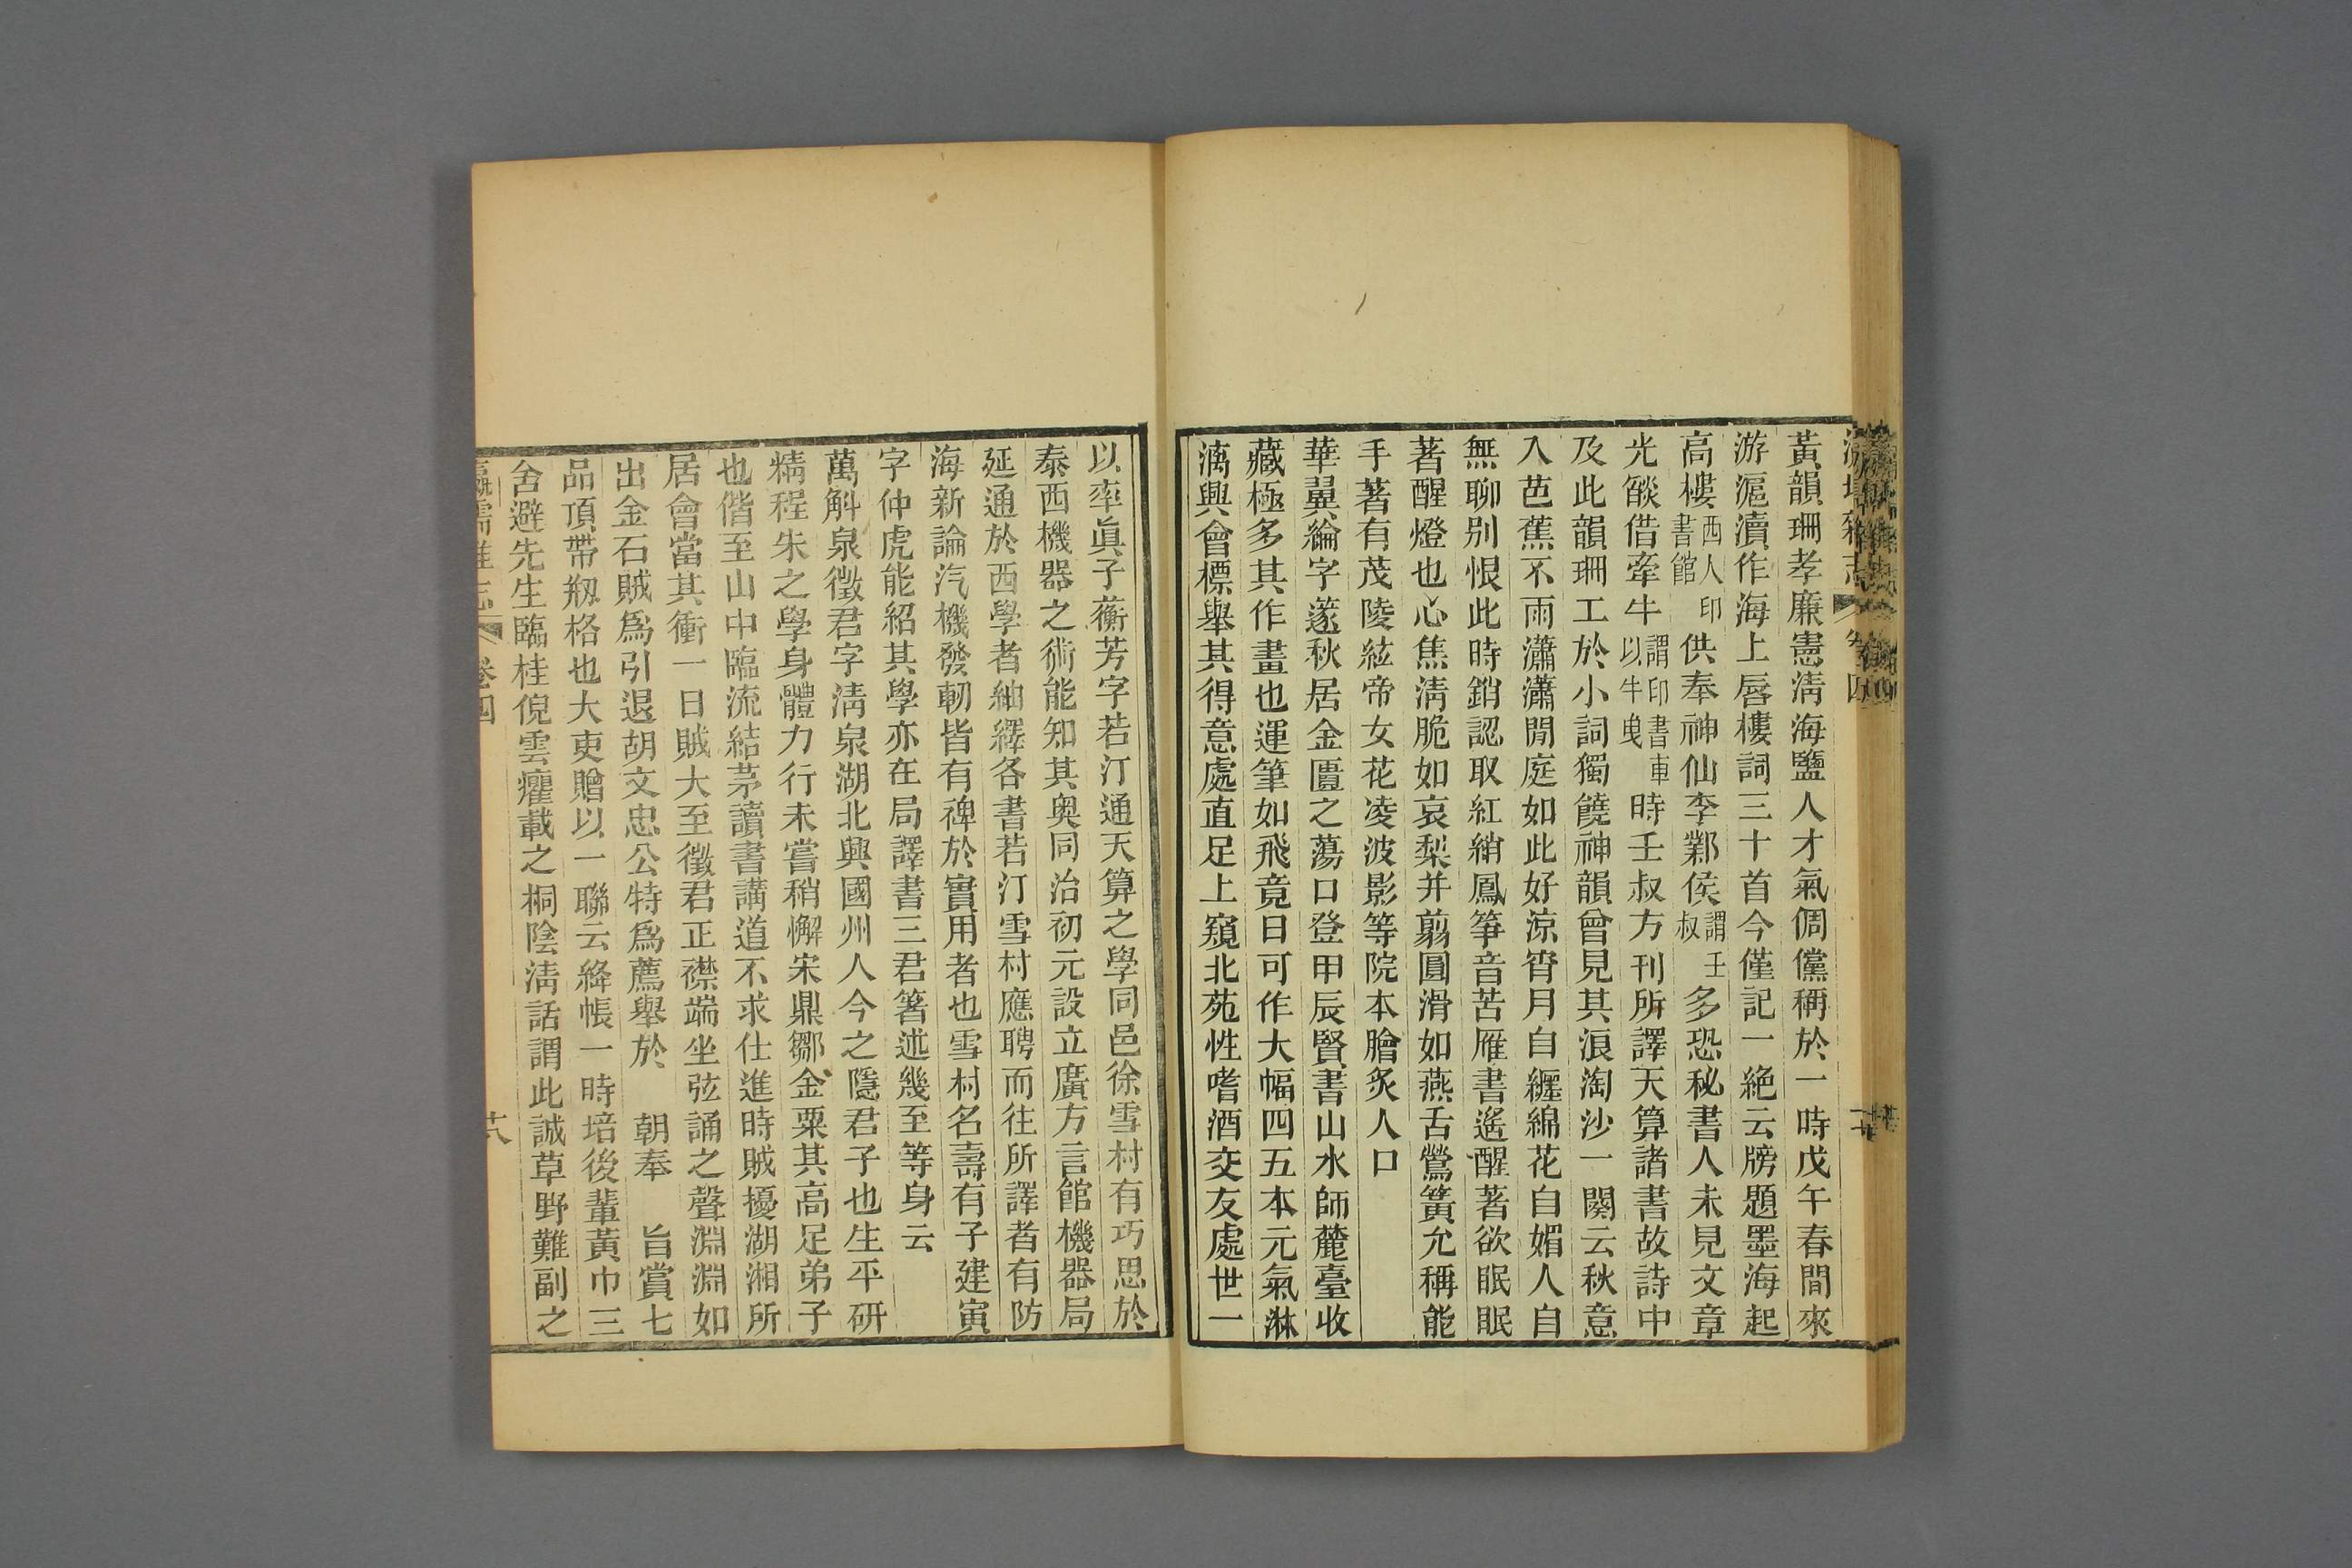 黃韻珊孝廉憲淸海鹽人才氣倜儻稱於一時戊午春間來
游滬瀆作海上唇樓詞三十首今僅記一絕云牓題墨海起
高樓西人印書館供奉神仙李鄴侯謂壬叔多恐秘書人未見文章
光燄借牽牛謂印書車以牛曳時壬叔方刊所譯天算諸書故詩中
及此韻珊工於小詞獨饒神韻曾見其浪淘沙一闋云秋意
入芭蕉不雨瀟瀟閒庭如此好涼宵月自纏綿花自媚人自
無聊別恨此時銷認取紅綃鳳箏音苦雁書遙醒著欲眠眠
著醒燈也心焦淸脆如哀梨并翦圓滑如燕舌鶯簧允稱能
手著有茂陵絃帝女花凌波影等院本膾炙人口
華翼綸字篴秋居金匱之蕩口登甲辰賢書山水師麓臺收
藏極多其作畫也運筆如飛竟日可作大幅四五本元氣淋
漓興會標舉其得意處直足上窺北苑性嗜酒交友處世一
以率眞子蘅芳字若汀通天算之學同邑徐雪村有巧思於
泰西機器之術能知其奧同治初元設立廣方言館機器局
延通於西學者紬繹各書若汀雪村應聘而往所譯者有防
海新論汽機發軔皆有裨於實用者也雪村名壽有子建寅
字仲虎能紹其學亦在局譯書三君箸述幾至等身云
萬斛泉徵君字淸泉湖北興國州人今之隱君子也生平硏
精程朱之學身體力行未嘗稍懈宋鼎鄒金粟其高足弟子
也偕至山中臨流結茅讀書講道不求仕進時賊擾湖湘所
居會當其衝一日賊大至徵君正襟端坐弦誦之聲淵淵如
出金石賊爲引退胡文忠公特爲薦舉於　朝奉　旨賞七
品頂帶剏格也大吏贈以一聯云絳帳一時培後輩黃巾三
舍避先生臨桂倪雲癯載之桐陰淸話謂此誠草野難副之
卷四
十八